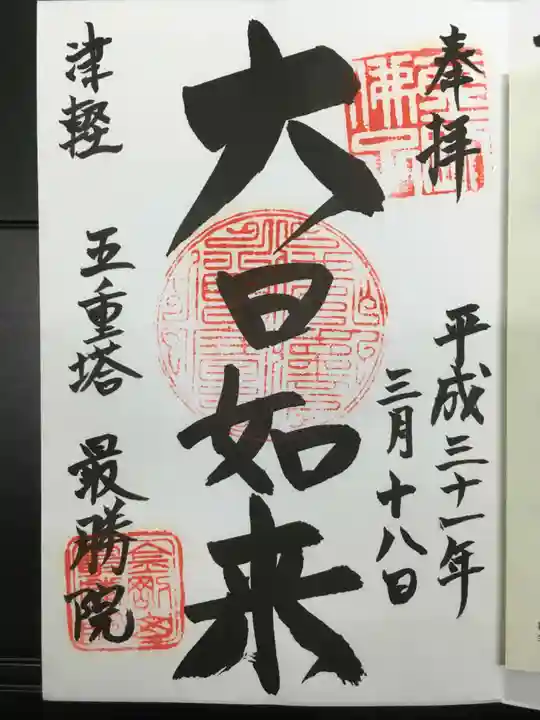 奉拝
平成三十一年
三月十八日
大日如来
津軽 五重塔 最勝院